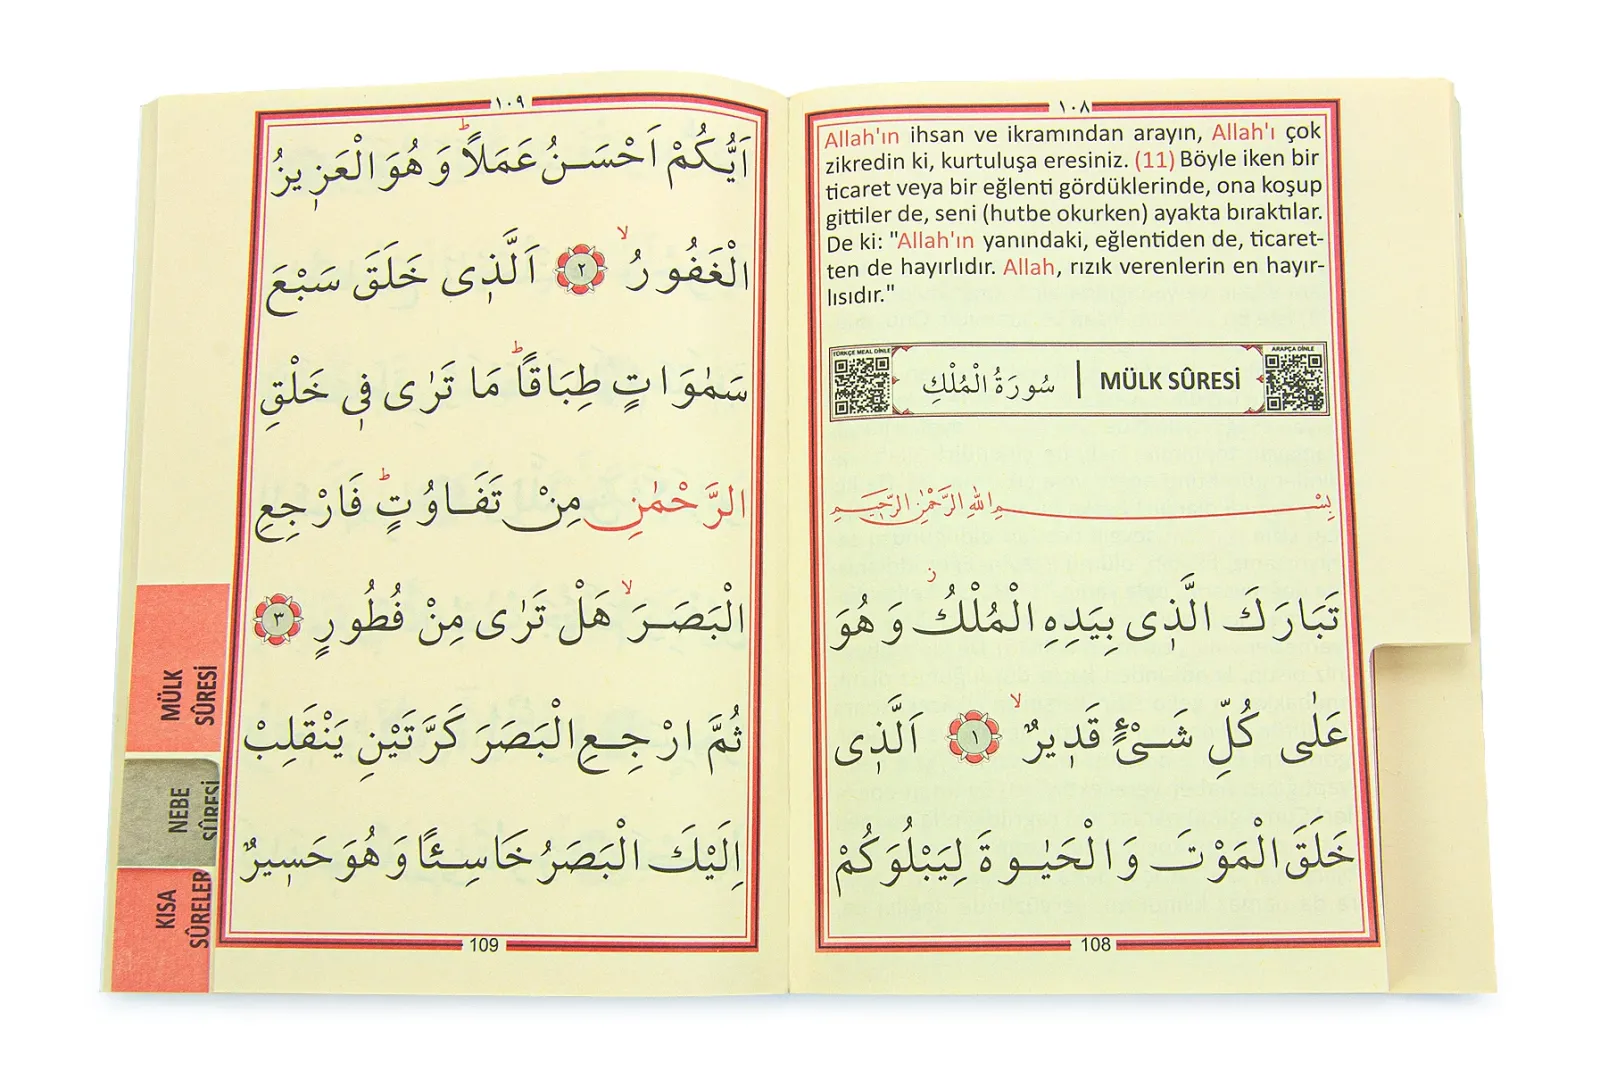 ١٠٨
Allah'ın ihsan ve ikramından arayın, Allah'ı çok
zikredin ki, kurtuluşa eresiniz. (11) Böyle iken bir
ticaret veya bir eğlenti gördüklerinde, ona koşup
gittiler de, seni (hutbe okurken) ayakta bıraktılar.
De ki: "Allah'ın yanındaki, eğlentiden de, ticaret-
ten de hayırlıdır. Allah, rızık verenlerin en hayır-
lısıdır."
TÜRKÇE MEAL DİNLE
سُورَةُ الْمُلْكِ | MÜLK SÛRESİ
ARAPÇA DİNLE
بِسْمِ اللّٰهِ الرَّحْمٰنِ الرَّحٖيمِ
تَبَارَكَ الَّذٖى بِيَدِهِ الْمُلْكُؗ وَ هُوَ
عَلٰى كُلِّ شَىْءٍ قَدٖيرٌۙ ﴿١﴾ اَلَّذٖى
خَلَقَ الْمَوْتَ وَالْحَيٰوةَ لِيَبْلُوَكُمْ
108
١٠٩
اَيُّكُمْ اَحْسَنُ عَمَلًاؕ وَ هُوَ الْعَزٖيزُ
الْغَفُورُۙ ﴿٢﴾ اَلَّذٖى خَلَقَ سَبْعَ
سَمٰوَاتٍ طِبَاقًاؕ مَا تَرٰى فٖى خَلْقِ
الرَّحْمٰنِ مِنْ تَفَاوُتٍؕ فَارْجِعِ
الْبَصَرَۙ هَلْ تَرٰى مِنْ فُطُورٍ ﴿٣﴾
ثُمَّ ارْجِعِ الْبَصَرَ كَرَّتَيْنِ يَنْقَلِبْ
اِلَيْكَ الْبَصَرُ خَاسِئًا وَ هُوَ حَسٖيرٌ
109
MÜLK
SÛRESİ
NEBE
SÛRESİ
KISA
SÛRELER